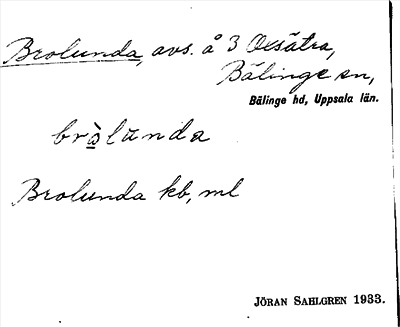 Brolunda, avs. å 3 Oxsätra,
Bälinge sn,
Bälinge hd, Uppsala län.
bròlunda
Brolunda kb, ml
JÖRAN SAHLGREN 1933.